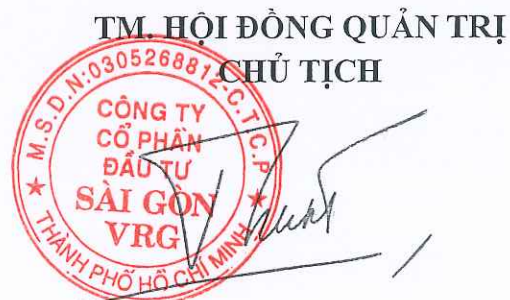 TM. HỘI ĐỒNG QUẢN TRỊ
CHỦ TỊCH
M.S.D.N:0305268812-C.T.C.P
CÔNG TY
CỔ PHẦN
ĐẦU TƯ
SÀI GÒN
VRG
THÀNH PHỐ HỒ CHÍ MINH